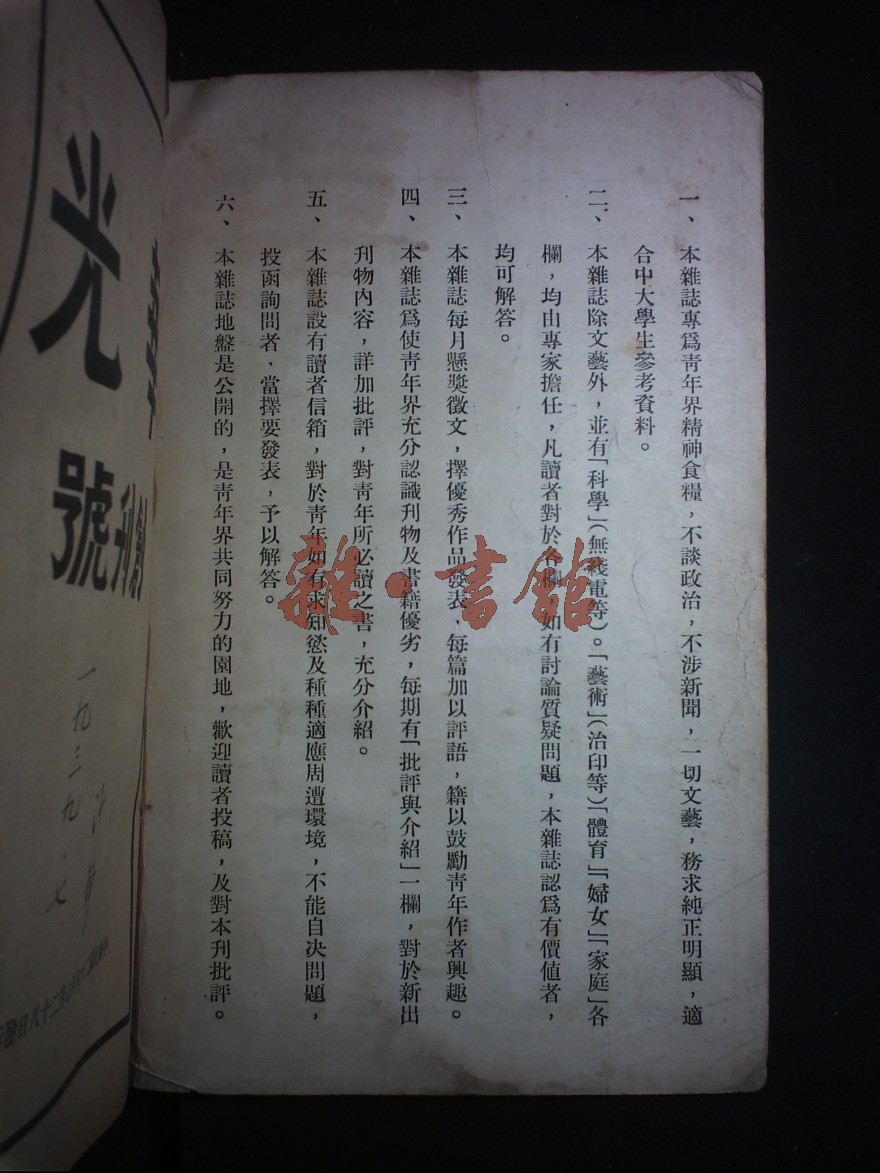 一、本雜誌專爲靑年界精神食糧，不談政治，不涉新聞，一切文藝，務求純正明顯，適
合中大學生參考資料。
二、本雜誌除文藝外，並有「科學」（無綫電等）。「藝術」（治印等）「體育」「婦女」「家庭」各
欄，均由專家擔任，凡讀者對於各欄，如有討論質疑問題，本雜誌認爲有價値者，
均可解答。
三、本雜誌每月懸奬徵文，擇優秀作品發表，每篇加以評語，籍以鼓勵靑年作者興趣。
四、本雜誌爲使靑年界充分認識刊物及書籍優劣，每期有「批評與介紹」一欄，對於新出
刊物內容，詳加批評，對靑年所必讀之書，充分介紹。
五、本雜誌設有讀者信箱，對於靑年如有求知慾及種種適應周遭環境，不能自决問題，
投函詢問者，當擇要發表，予以解答。
六、本雜誌地盤是公開的，是靑年界共同努力的園地，歡迎讀者投稿，及對本刊批評。
雜·書館
光
創刊號
一九三九·七
二十八日發